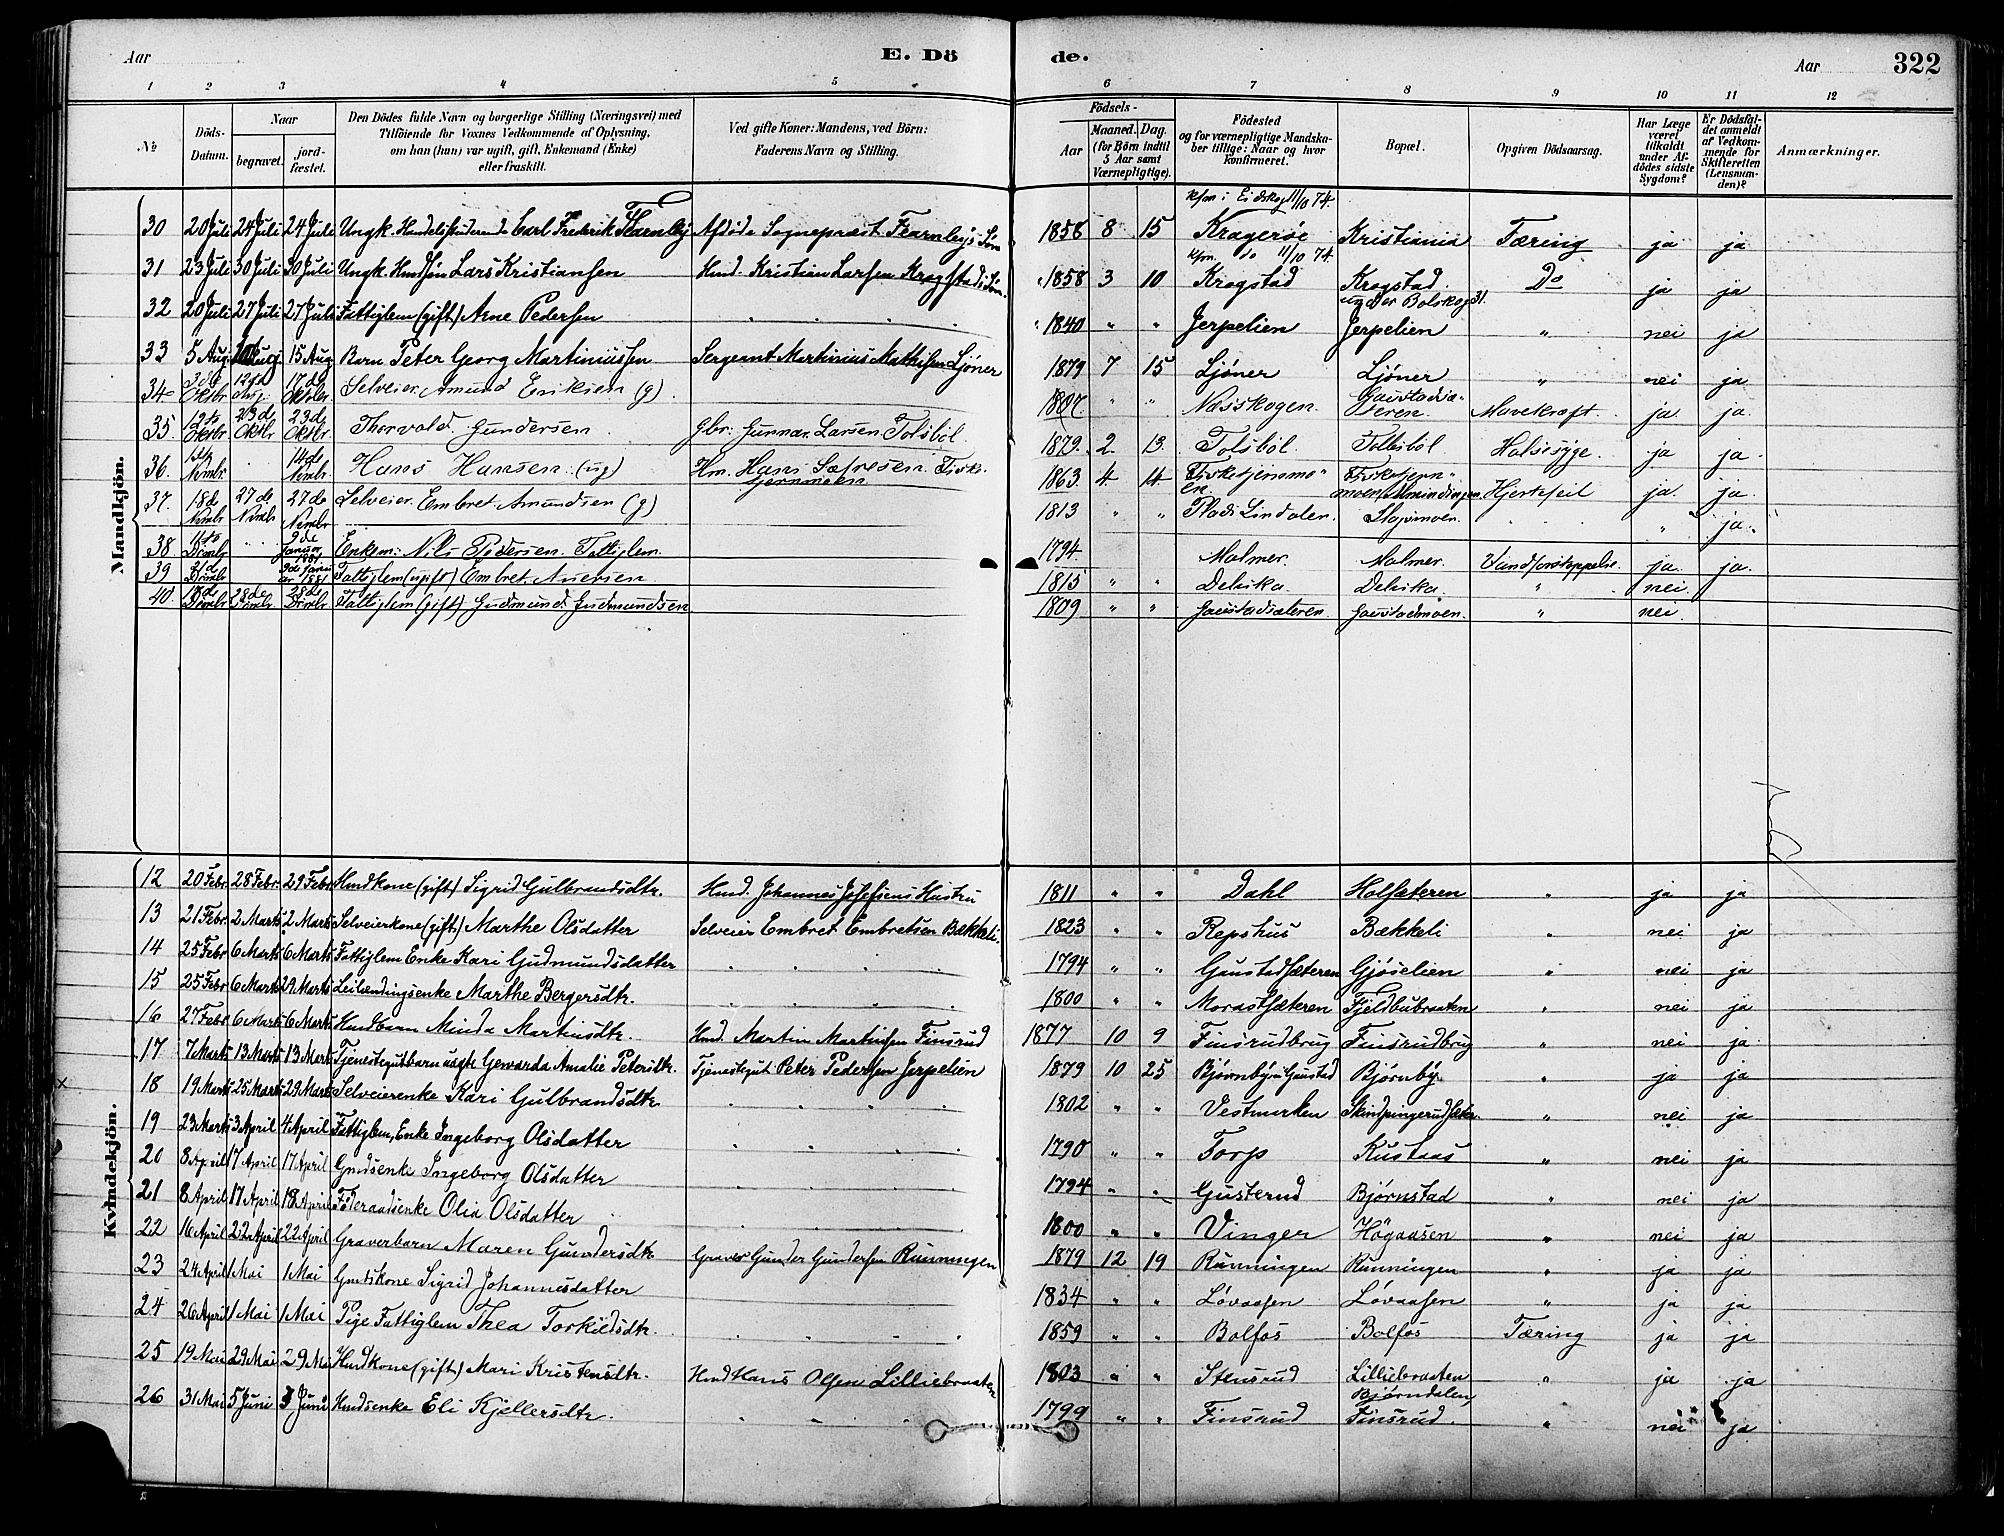 Aar E. Dö de. Aar 322
1 2 3 4 5 6 7 8 9 10 11 12
No Döds-Datum. Naar begravet. jordfæstet. Den Dödes fulde Navn og borgerlige Stilling (Næringsvei) med Tilföiende for Voxnes Vedkommende af Oplysning, om han (hun) var ugift, gift, Enkemand (Enke) eller fraskilt. Ved gifte Koner: Mandens, ved Börn: Faderens Navn og Stilling. Födsels- Aar Maaned. Dag. (for Børn indtil 5 Aar samt Værnepligtige). Födested og for værnepligtige Mandskaber tillige: Naar og hvor Konfirmeret. Bopæl. Opgiven Dödsaarsag. Har Læge været tilkaldt under Afdödes sidste Sygdom? Er Dödsfaldet anmeldt af Vedkommende for Skifteretten (Lensmanden)? Anmærkninger.
Mandkjön.
kfm i Eidskog 11/10 74.
30 20 Juli 24 Juli 24 Juli Ungk. Handelsbetj Carl Frederik Fearnley Afdøde Sognepræst Fearnley's Søn 1858 8 15 Kragerøe Kristiania Tæring ja ja
kfm. Do 11/10 74.
31 23 Juli 30 Juli 30 Juli Ungk. Lars Kristiansen Hmd. Kristian Larsen Krogstads Søn 1858 3 10 Krogstad Krogstad Do ja ja
32 20 Juli 27 Juli 27 Juli Fattiglem (gift) Arne Pedersen " " " " 1840 " " Jerpelien Jerpelien " nei ja
33 5 Aug 15 Aug Barn Peter Georg Martiniussen Sergeant Martinius Mathisen Ljøner 1879 7 15 Ljøner Ljøner " nei ja
34 Oktbr 17 de Oktbr Selveier Amund Eriksen (g) 1807 " " Næsskogen Mavekræft ja ja
35 12te Oktbr 23 de Oktbr 23 de Oktbr Thorvald Gundersen Gbr: Gunnar Larsen Tolsböl 1879 2 13 Tolsböl Tollsböl Halsesyge ja ja
36 Nvmbr 14 de Nvmbr Hans Hansen (ug) Hm. Hans Fisktjernmoen 1863 4 14 Fisketjernmoen Fisketjernmoen, Almindingen Hjertefeil ja ja
37 18 de Nvmbr 27 de Nvmbr 27 de Nvmbr Selveier Embret Amundsen (g) 1813 " " Lindalen " ja
38 11te Dcmbr 9 de Januar 1881 Enkem: Nils Pedersen Fattiglem 1794 Malmer Malmer Vandforstoppelse ja ja
39 Dcmbr 9 de Januar 1881 Fattiglem (ugift) Embret 1815 " " Delvika Delvika " nei
40 18 de Dcmbr 28 de Dcmbr 28 de Dcmbr Fattiglem (gift) Gudmund Gudmundsen 1809 " " Gaustadsæteren Gaustadmoen " nei
Kvindekjön.
12 20 Febr 28 Febr 29 Febr Hmdkone (gift) Sigrid Gulbrandsdtr. Hmd. Johannes Josefsens Hustru 1811 " " Dahl Holsæteren " ja ja
13 21 Febr 2 Marts 2 Marts Selveierkone (gift) Marthe Olsdatter Selveier Embret Embretsen Bækkeli 1823 " " Repshus Bækkeli " nei ja
14 25 Febr 6 Marts 6 Marts Fattiglem Enke Kari Gudmundsdatter " " " " 1794 " " Gaustadsæteren Gjøselien " nei ja
15 25 Febr 6 Marts 29 Marts Leilændingsenke Marthe Bergersdtr. " " " " 1800 " " Morastsæteren Fjeldbubraaten " nei ja
16 27 Febr 6 Marts 6 Marts Hmdbarn Minda Martinsdtr. Hmd. Martin Martinsen Finsrud 1877 10 9 Finsrudbrug Finsrudbrug " nei ja
17 7 Marts 13 Marts 13 Marts Tjenestegutbarn uægte Gewarda Amalie Petersdtr. Tjenestegut Peter Pedersen Jerpelien 1879 10 25 Bjørnby Gaustad Bjørnby " ja ja
18 19 Marts 25 Marts 29 Marts Selveierenke Kari Gulbrandsdtr. " " " 1802 " " Vestmarken Skindpungerudsæter " nei ja
19 23 Marts 3 April 4 April Fattiglem, Enke Ingeborg Olsdatter " " " 1790 " " Torp Kustaas " nei ja
20 8 April 17 April 17 April Gmdsenke Ingeborg Olsdatter " " " 1794 " " Gusterud Bjørnstad " nei ja
21 8 April 17 April 18 April Føderaadsenke Olia Olsdatter " " " 1800 " " Vinger Högaasen " nei ja
22 16 April 22 April 22 April Graverbarn Maren Gundersdtr. Graver Gunder Gundersen Rünningen 1879 12 19 Rünningen Rünningen " ja ja
23 24 April 1 Mai 1 Mai Gmdskone Sigrid Johannesdatter 1834 " " Løvaasen Løvaasen " ja ja
24 26 April 1 Mai 1 Mai Pige Fattiglem Thea Torkildsdtr. " " " " 1859 " " Bolfos Bolfos Tæring ja ja
25 19 Mai 29 Mai 29 Mai Hmdkone (gift) Mari Kristensdtr. Hmd Hans Olsen Lilliebraaten 1803 " " Stensrud Lilliebraaten " ja ja
26 31 Mai 5 Juni Juni Hmdsenke Eli Kjellersdtr. " " " 1799 " " Finsrud Bjørndalen, Finsrud. " nei ja